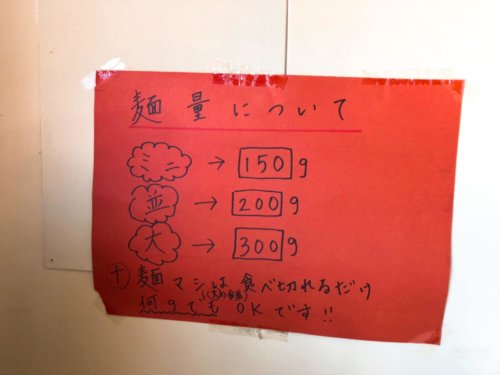 麺量について
ミニ → 150g
並 → 200g
大 → 300g
＋麺マシは食べ切れるだけ
何gでもOKです!!